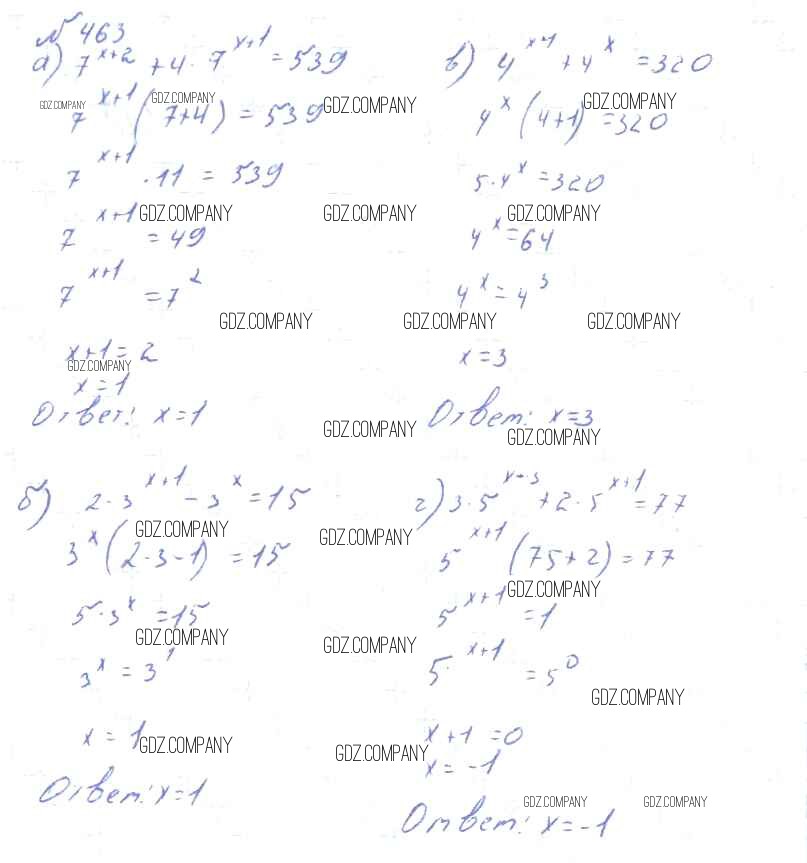 № 463
а) 7^(x+2) + 4 · 7^(x+1) = 539
7^(x+1) (7+4) = 539
7^(x+1) · 11 = 539
7^(x+1) = 49
7^(x+1) = 7^2
x+1 = 2
x = 1
Ответ: x=1
в) 4^(x+1) + 4^x = 320
4^x (4+1) = 320
5·4^x = 320
4^x = 64
4^x = 4^3
x = 3
Ответ: x=3
б) 2·3^(x+1) - 3^x = 15
3^x (2·3-1) = 15
5·3^x = 15
3^x = 3^1
x = 1
Ответ: x=1
г) 3·5^(x+3) + 2·5^(x+1) = 77
5^(x+1) (75+2) = 77
5^(x+1) = 1
5^(x+1) = 5^0
x+1 = 0
x = -1
Ответ: x=-1
GDZ.COMPANY GDZ.COMPANY GDZ.COMPANY GDZ.COMPANY
GDZ.COMPANY GDZ.COMPANY GDZ.COMPANY
GDZ.COMPANY GDZ.COMPANY GDZ.COMPANY
GDZ.COMPANY
GDZ.COMPANY GDZ.COMPANY
GDZ.COMPANY GDZ.COMPANY
GDZ.COMPANY
GDZ.COMPANY GDZ.COMPANY
GDZ.COMPANY
GDZ.COMPANY GDZ.COMPANY
GDZ.COMPANY GDZ.COMPANY